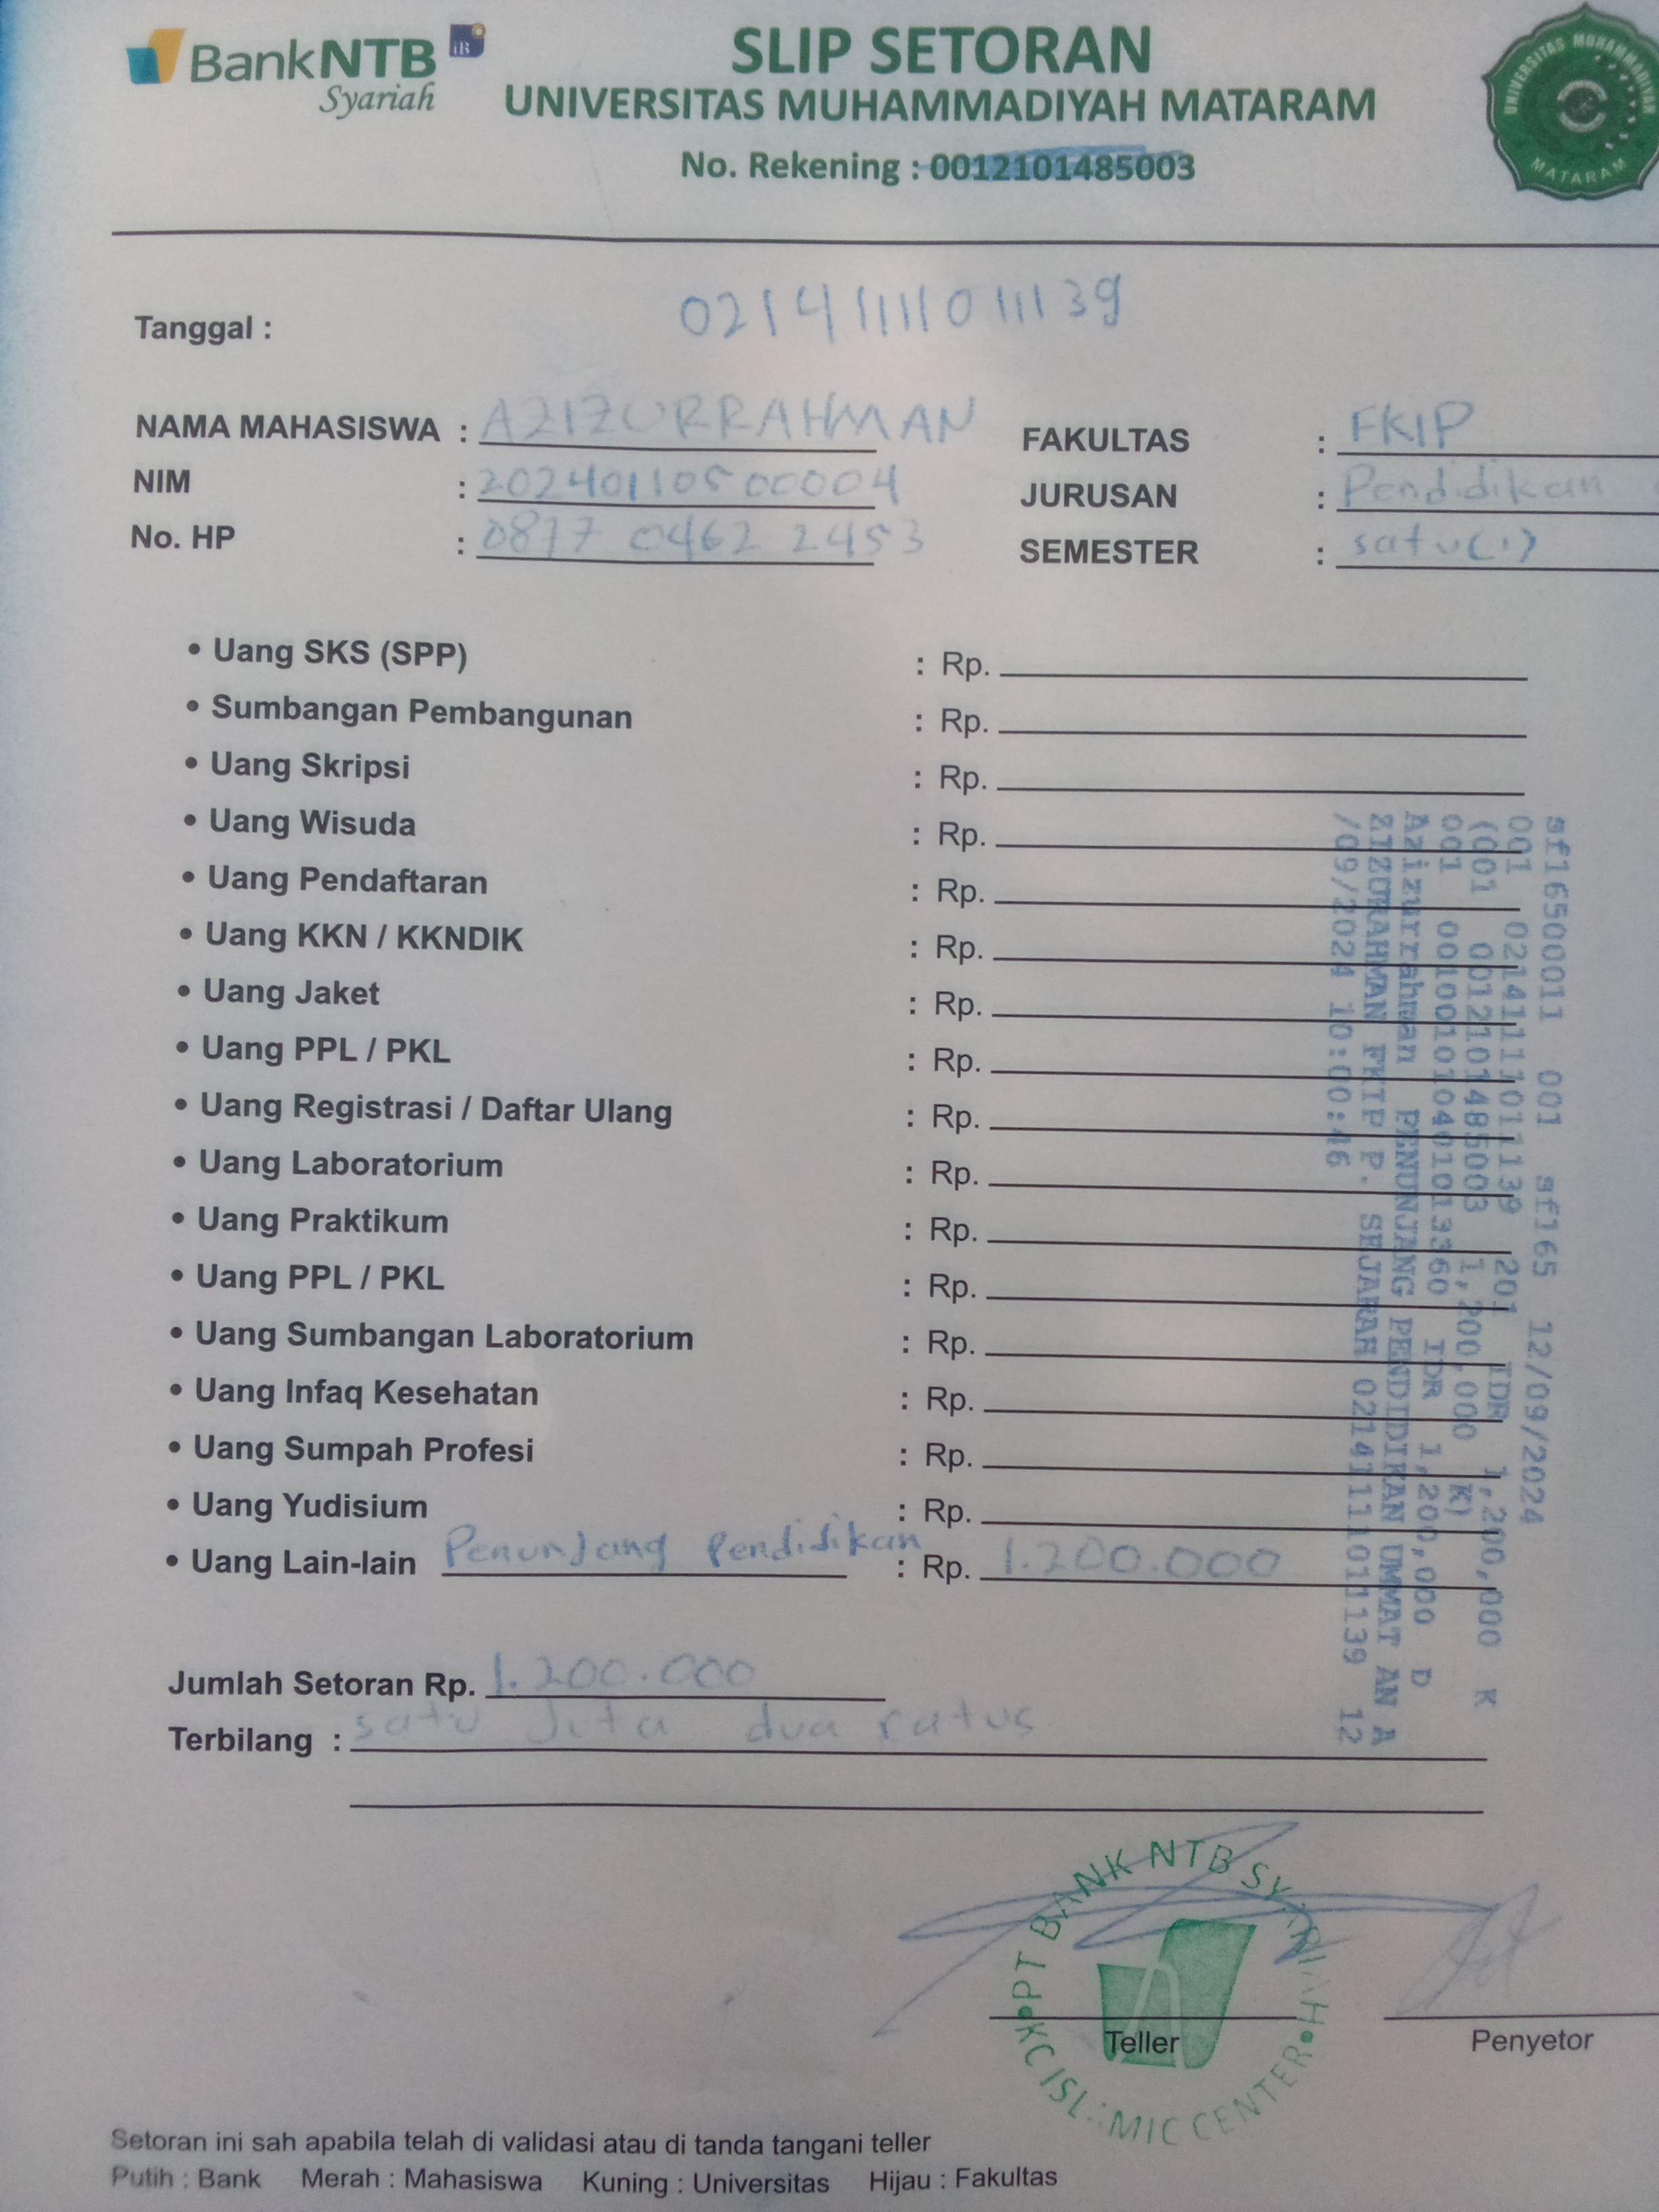 BankNTB iB
Syariah
SLIP SETORAN
UNIVERSITAS MUHAMMADIYAH MATARAM
No. Rekening : 0012101485003
UNIVERSITAS MUHAMMADIYAH
MATARAM
0214111101139
Tanggal :
NAMA MAHASISWA : AZIZURRAHMAN
NIM : 20240110500004
No. HP : 0877 0462 2453
FAKULTAS : FKIP
JURUSAN : Pendidikan
SEMESTER : satu(1)
• Uang SKS (SPP) : Rp.
• Sumbangan Pembangunan : Rp.
• Uang Skripsi : Rp.
• Uang Wisuda : Rp.
• Uang Pendaftaran : Rp.
• Uang KKN / KKNDIK : Rp.
• Uang Jaket : Rp.
• Uang PPL / PKL : Rp.
• Uang Registrasi / Daftar Ulang : Rp.
• Uang Laboratorium : Rp.
• Uang Praktikum : Rp.
• Uang PPL / PKL : Rp.
• Uang Sumbangan Laboratorium : Rp.
• Uang Infaq Kesehatan : Rp.
• Uang Sumpah Profesi : Rp.
• Uang Yudisium : Rp.
• Uang Lain-lain Penunjang Pendidikan : Rp. 1.200.000
sf16500011 001 sf165 12/09/2024
001 0214111101139 201 IDR 1,200,000 K
(001 0012101485003 1,200,000 K)
001 IDR 1,200,000 D
Azizurrahman PENUNJANG PENDIDIKAN UMMAT AN A
ZIZURAHMAN FKIP P. SEJARAH 0214111101139 12
/09/2024 10:00:46
Jumlah Setoran Rp. 1.200.000
Terbilang : satu Juta dua ratus
PT BANK NTB SYARIAH
KC ISLAMIC CENTER
Teller
Penyetor
Setoran ini sah apabila telah di validasi atau di tanda tangani teller
Putih : Bank Merah : Mahasiswa Kuning : Universitas Hijau : Fakultas